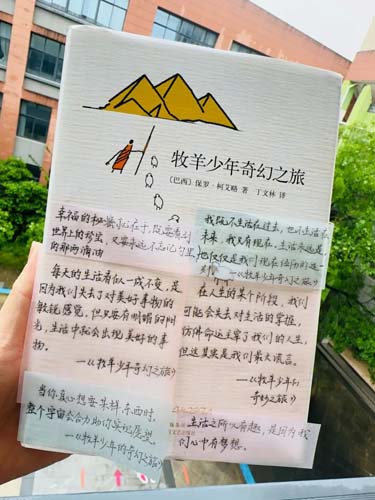 牧羊少年奇幻之旅
〔巴西〕保罗·柯艾略 著 丁文林 译
幸福的秘密就在于,既要看到
世界上的珍宝,又要永远不忘记勺里
的那两滴油
我既不生活在过去,也不生活在
未来,我只有现在。生活永远是,
也仅仅是我们现在经历的这一
—《牧羊少年奇幻之旅》
每天的生活看似一成不变,是
因为我们失去了对美好事物的
敏锐感觉。但只要有明媚的阳
光,生活中就会出现美好的事
物。
—《牧羊少年奇幻之旅》
在人生的某个阶段,我们
可能会失去对生活的掌控,
仿佛命运主宰了我们的人生,
但这其实是我们最大谎言。
—《牧羊少年的
奇妙之旅》
当你真心想要某样东西时,
整个宇宙会合力助你实现愿望。
—《牧羊少年的奇幻之旅》
生活之所以有趣,是因为我
们心中有梦想。